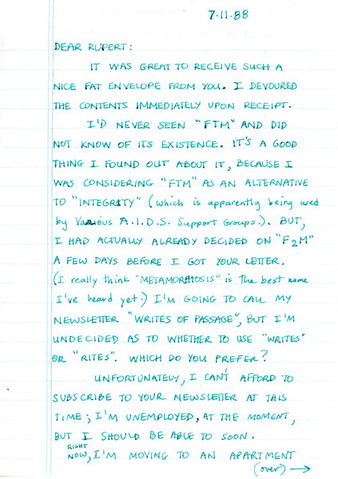 7-11-88
DEAR RUPERT:
IT WAS GREAT TO RECEIVE SUCH A
NICE FAT ENVELOPE FROM YOU. I DEVOURED
THE CONTENTS IMMEDIATELY UPON RECEIPT.
I'D NEVER SEEN "FTM" AND DID
NOT KNOW OF ITS EXISTENCE. IT'S A GOOD
THING I FOUND OUT ABOUT IT, BECAUSE I
WAS CONSIDERING "FTM" AS AN ALTERNATIVE
TO "INTEGRITY" (which is apparently being used
by Various A.I.D.S. Support Groups.). BUT,
I HAD ACTUALLY ALREADY DECIDED ON "F2M"
A FEW DAYS BEFORE I GOT YOUR LETTER.
(I really think "METAMORPHOSIS" is The best name
I've heard yet.) I'M GOING TO CALL MY
NEWSLETTER "WRITES OF PASSAGE", BUT I'M
UNDECIDED AS TO WHETHER TO USE "WRITES"
OR "RITES". WHICH DO YOU PREFER?
UNFORTUNATELY, I CAN'T AFFORD TO
SUBSCRIBE TO YOUR NEWSLETTER AT THIS
TIME; I'M UNEMPLOYED, AT THE MOMENT,
BUT I SHOULD BE ABLE TO SOON.
RIGHT
NOW, I'M MOVING TO AN APARTMENT
(over) →